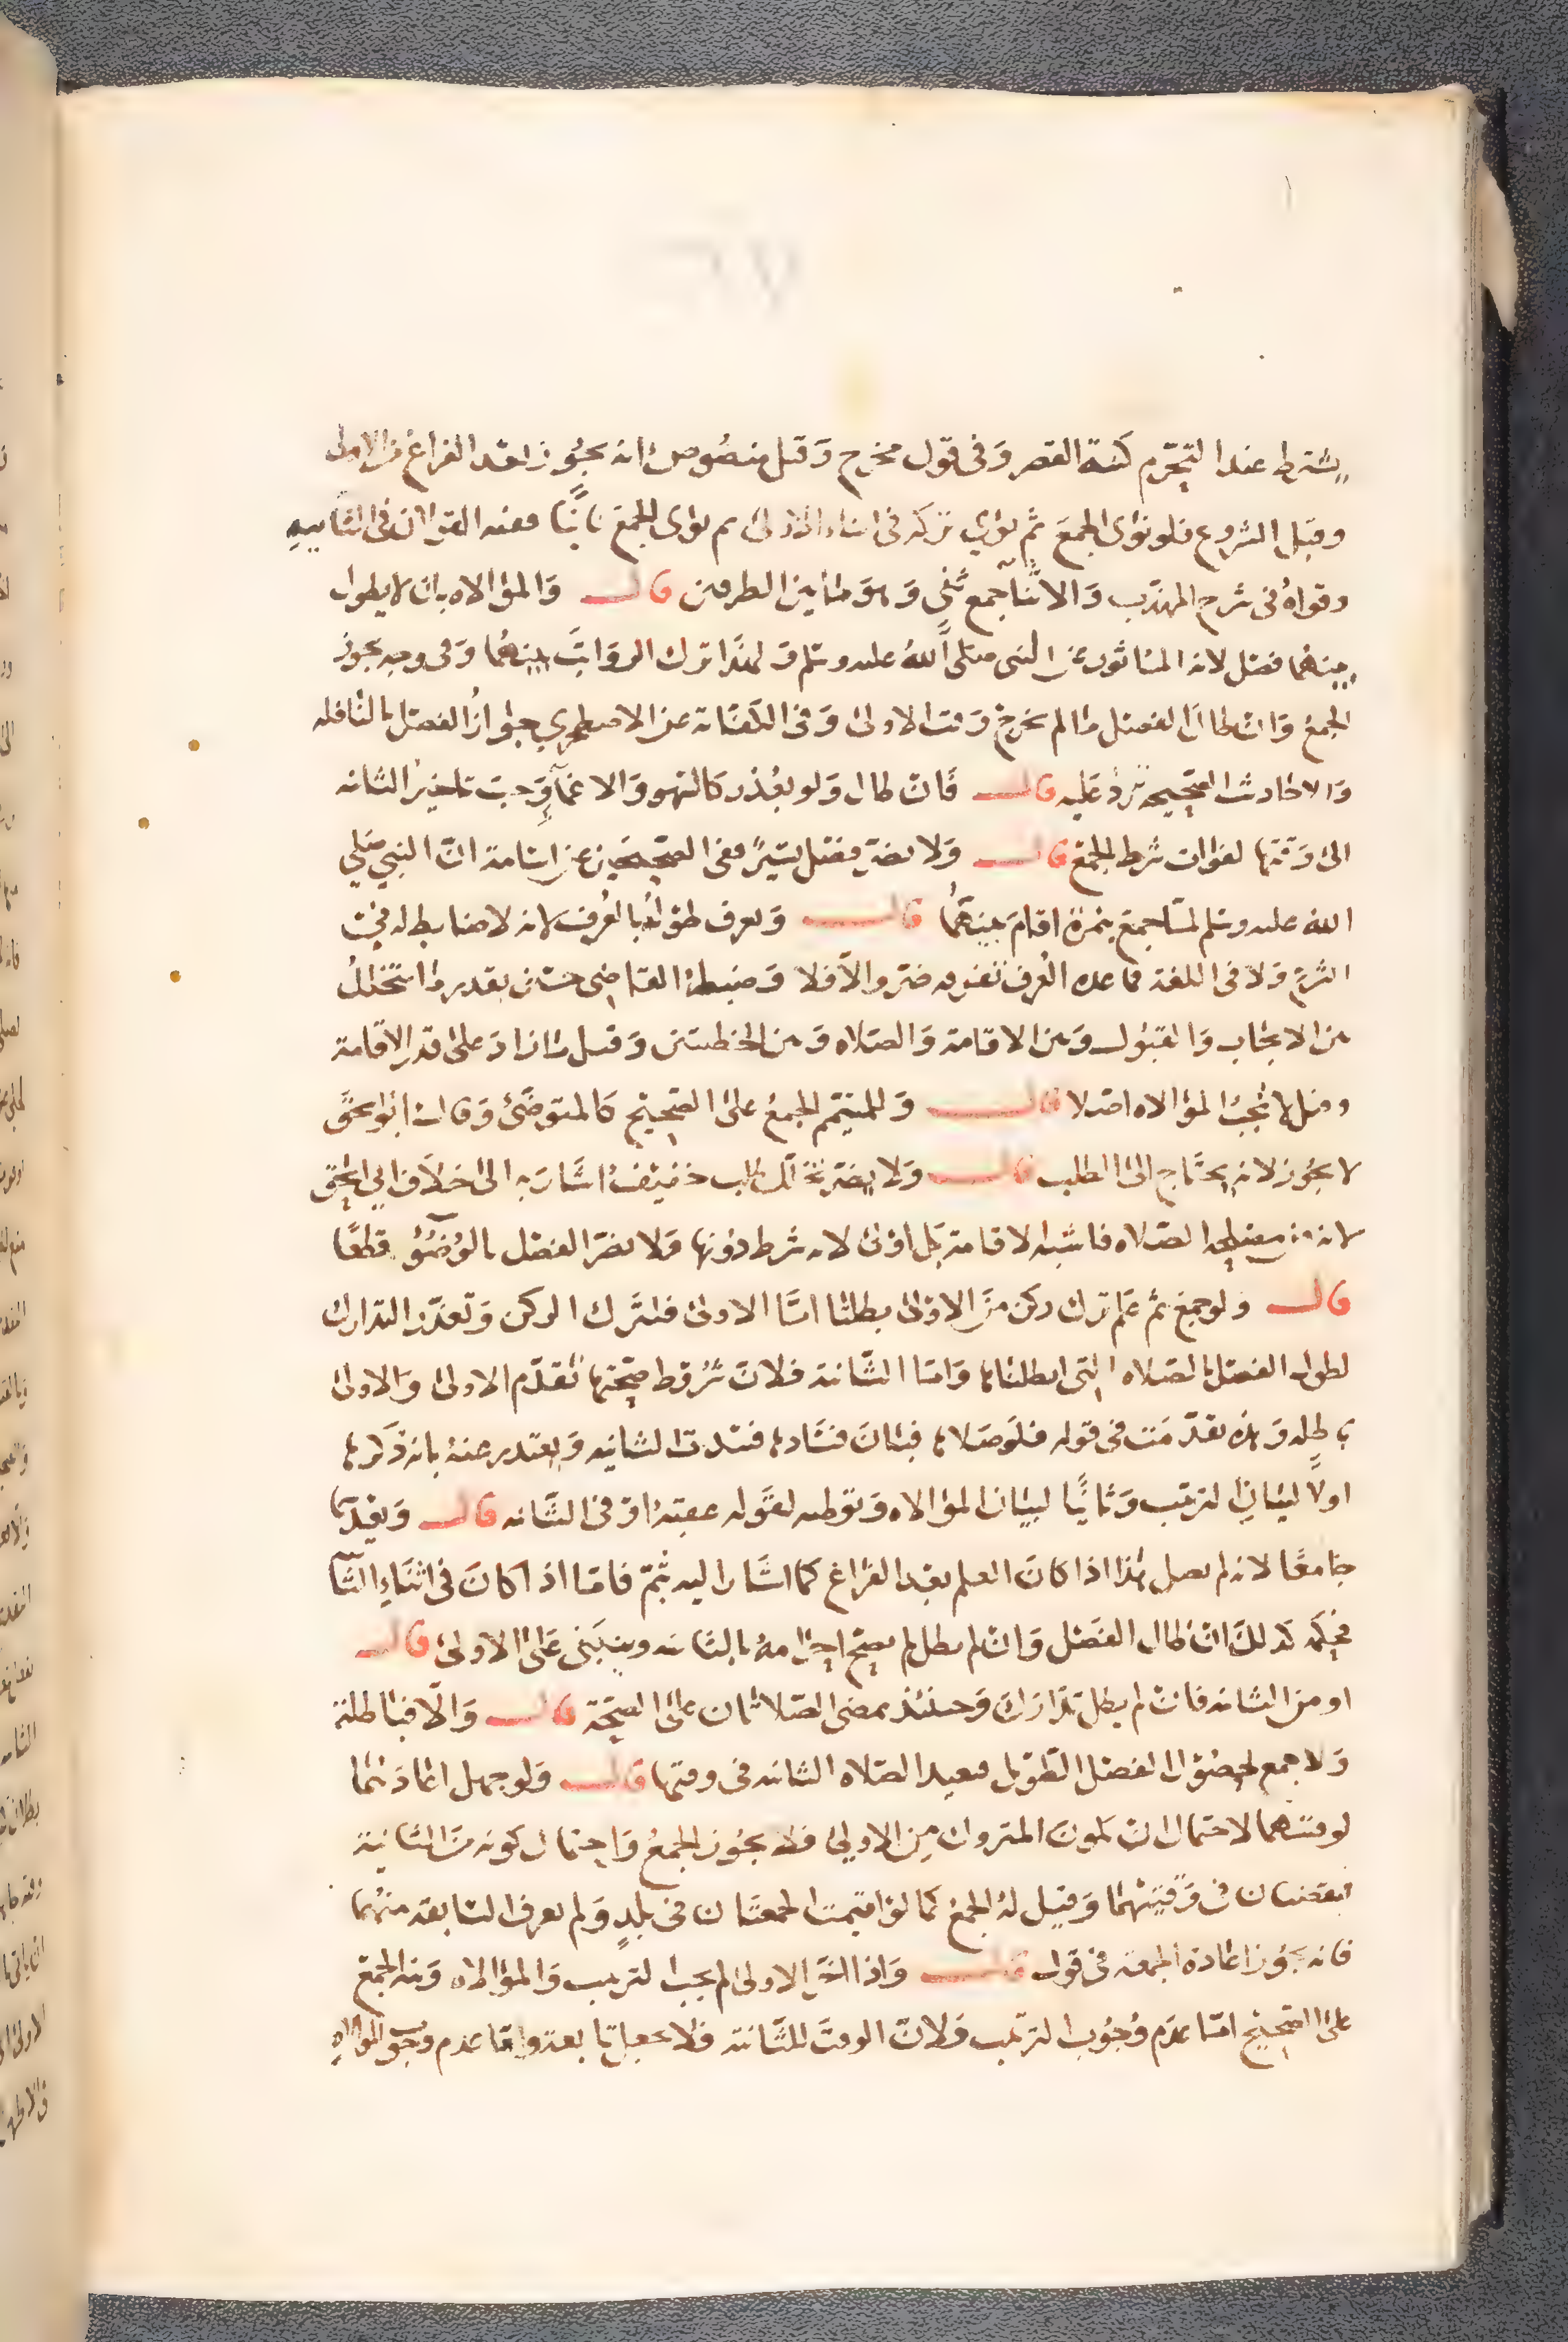 يشترط عند التحرم كنية القصر وفى قول مخرج وقيل منصوص انه يجوز بعد الفراغ من الاولى
وقبل الشروع فلو نوى الجمع ثم نوى تركه فى اثناء الاولى ثم نوى الجمع ثانيا ففيه القولان فى الثانيه
وقواه فى شرح المهذب والاثنا جمع ثنى وهو ما بين الطرفين قال والموالاه بان لا يطول
بينهما فصل لانه الماثور عن النبى صلى الله عليه وسلم ولهذا ترك الرواتب بينهما وفى وجه يجوز
الجمع وان طال الفصل ما لم يخرج وقت الاولى وفى الكفاية عن الاصطخري جواز الفصل بالنافله
والاحاديث الصحيحه ترد عليه قال فان طال ولو بعذر كالسهو والاغماء وجب تاخير الثانيه
الى وقتها لفوات شرط الجمع قال ولا يضر فصل يسير ففى الصحيحين عن اسامة ان النبي صلي
الله عليه وسلم لما جمع بنمرة اقام بينهما قال ويعرف طوله بالعرف لانه لا ضابط له في
الشرع ولا فى اللغة فما عده العرف تفريقا ضر والا فلا وضبطه القاضى حسين بقدر ما يتخلل
بين الايجاب والقبول وبين الاقامة والصلاه وبين الخطبتين وقيل ما زاد على قدر الاقامة
وقيل لا تجب الموالاه اصلا قال وللمتيمم الجمع على الصحيح كالمتوضئ وقال ابو اسحق
لا يجوز لانه يحتاج الى الطلب قال ولا يضر تخلل طلب خفيف اشار به الى خلاف ابي اسحق
لانه من مصلحه الصلاه فاشبه الاقامة بل اولى لانه شرط دونها ولا يضر الفصل بالوضوء قطعا
قال ولو جمع ثم علم ترك ركن من الاولى بطلتا اما الاولى فلترك الركن وتعذر التدارك
لطول الفصل بالصلاه التى ابطلناها واما الثانية فلان شروط صحتها تقدم الاولى والاولى
باطله وهذه تقدمت فى قوله فلو صلاها فبان فسادها فسدت الثانيه ويعتذر عنه بانه ذكرها
اولا لبيان الترتيب وثانيا لبيان الموالاه وتوطيه لقوله عقبه او فى الثانيه قال ويعيدهما
جامعا لانه لم يصل هذا اذا كان العلم بعد الفراغ كما اشار اليه بثم فاما اذا كان فى اثناء الثانيه
فحكمه كذلك ان طال الفصل وان لم يطل لم يصح احرامه بالثانيه ويبنى على الاولى قال
او من الثانيه فان لم يطل تدارك وحينئذ بمضى الصلاتان على الصحة قال والا فباطلة
ولا جمع لحصول الفصل الطويل فيعيد الصلاه الثانيه فى وقتها قال ولو جهل اعادهما
لوقتيهما لاحتمال ان يكون المتروك من الاولي فلا يجوز الجمع واحتمال كونه من الثانية
فيقضيان فى وقتيهما وقيل له الجمع كما لو اقيمت جمعتان فى بلد ولم يعرف السابقه منهما
فانه يجوز اعادة الجمعه فى قول قال واذا اخر الاولى لم يجب الترتيب والموالاه ونيه الجمع
على الصحيح اما عدم وجوب الترتيب فلان الوقت للثانية فلا يجعل تابعة واما عدم وجوب الموالاه